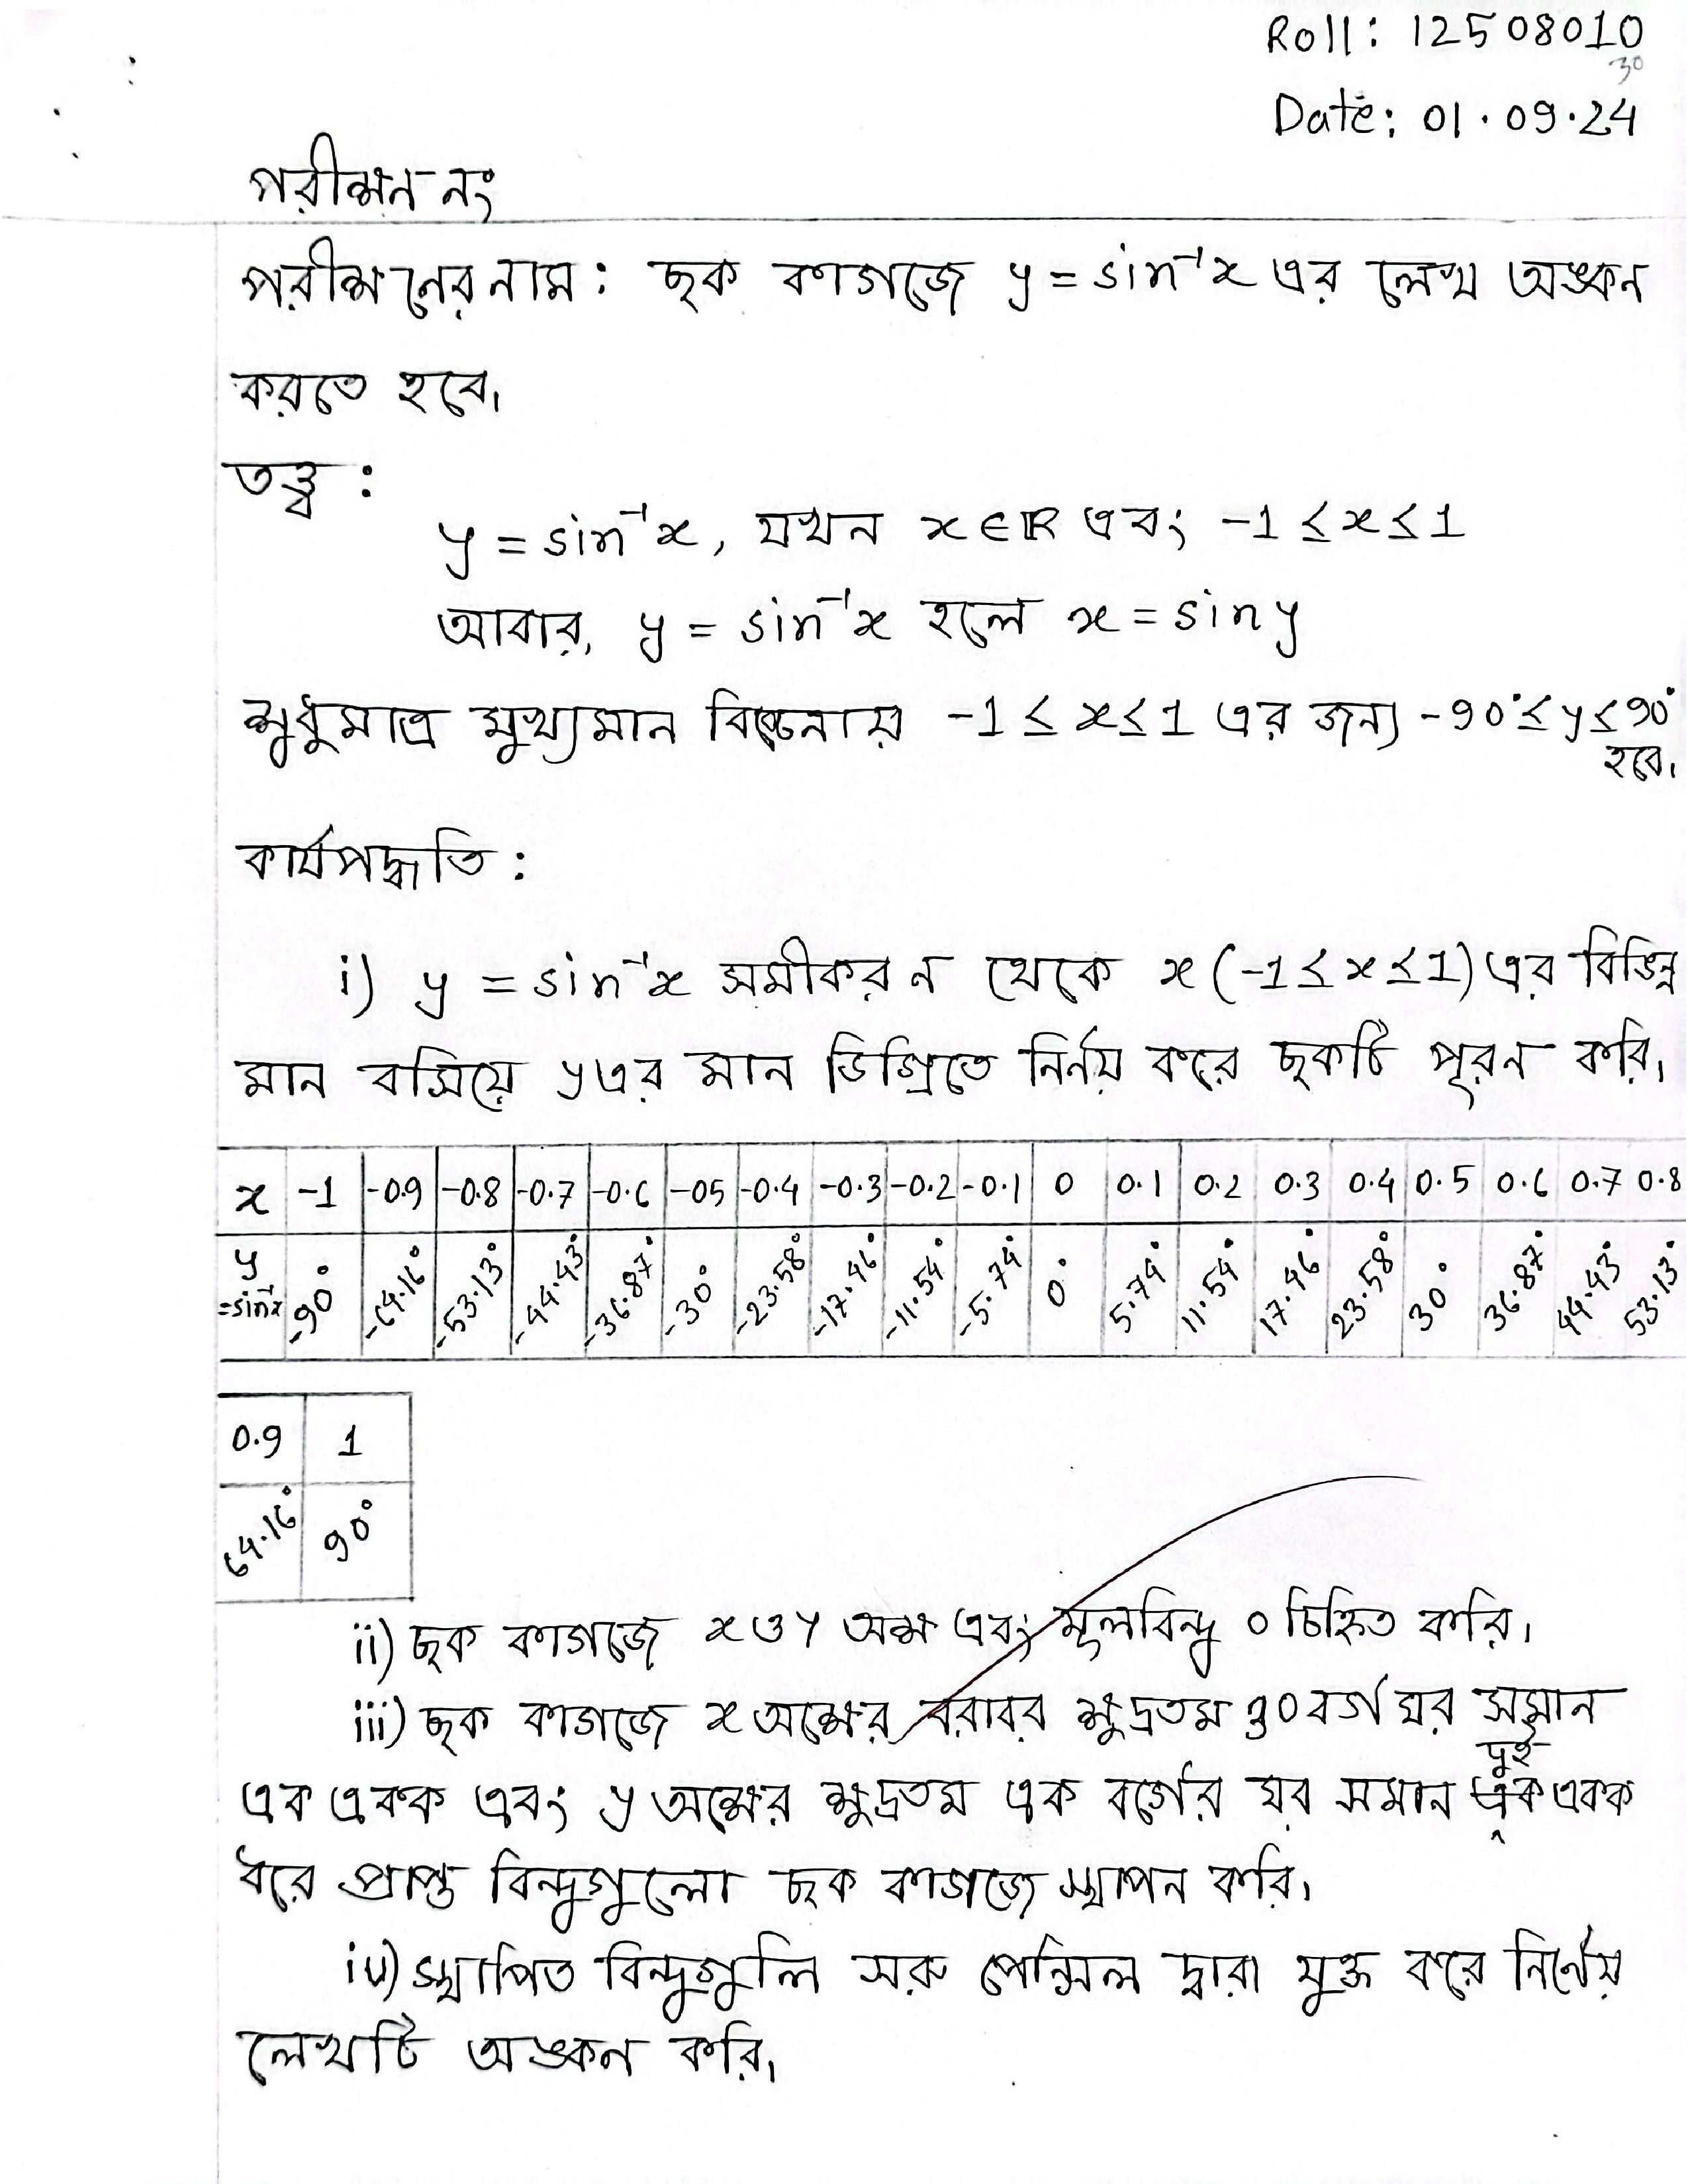 Roll: 12508010
30
Date: 01.09.24
পরীক্ষন নং
পরীক্ষনের নাম: ছক কাগজে y = sin⁻¹x এর লেখ অঙ্কন
করতে হবে।
তত্ত্ব :
y = sin⁻¹x, যখন x ∈ ℝ এবং -1 ≤ x ≤ 1
আবার, y = sin⁻¹x হলে x = sin y
শুধুমাত্র মুখ্যমান বিবেচনায় -1 ≤ x ≤ 1 এর জন্য -90° ≤ y ≤ 90°
হবে।
কার্যপদ্ধতি :
i) y = sin⁻¹x সমীকরন থেকে x (-1 ≤ x ≤ 1) এর বিভিন্ন
মান বসিয়ে y এর মান ডিগ্রিতে নির্নয় করে ছকটি পূরন করি।
x -1 -0.9 -0.8 -0.7 -0.6 -05 -0.4 -0.3 -0.2 -0.1 0 0.1 0.2 0.3 0.4 0.5 0.6 0.7 0.8
y =sin⁻¹x -90° -64.16° -53.13° -44.43° -36.87° -30° -23.58° -17.46° -11.54° -5.74° 0° 5.74° 11.54° 17.46° 23.58° 30° 36.87° 44.43° 53.13°
0.9 1
64.16° 90°
ii) ছক কাগজে x ও y অক্ষ এবং মূলবিন্দু 0 চিহ্নিত করি।
iii) ছক কাগজে x অক্ষের বরাবর ক্ষুদ্রতম 30 বর্গ ঘর সমান
দুই
এক একক এবং y অক্ষের ক্ষুদ্রতম এক বর্গের ঘর সমান এক একক
ধরে প্রাপ্ত বিন্দুগুলো ছক কাগজে স্থাপন করি।
iv) স্থাপিত বিন্দুগুলি সরু পেন্সিল দ্বারা যুক্ত করে নির্ণেয়
লেখটি অঙ্কন করি।